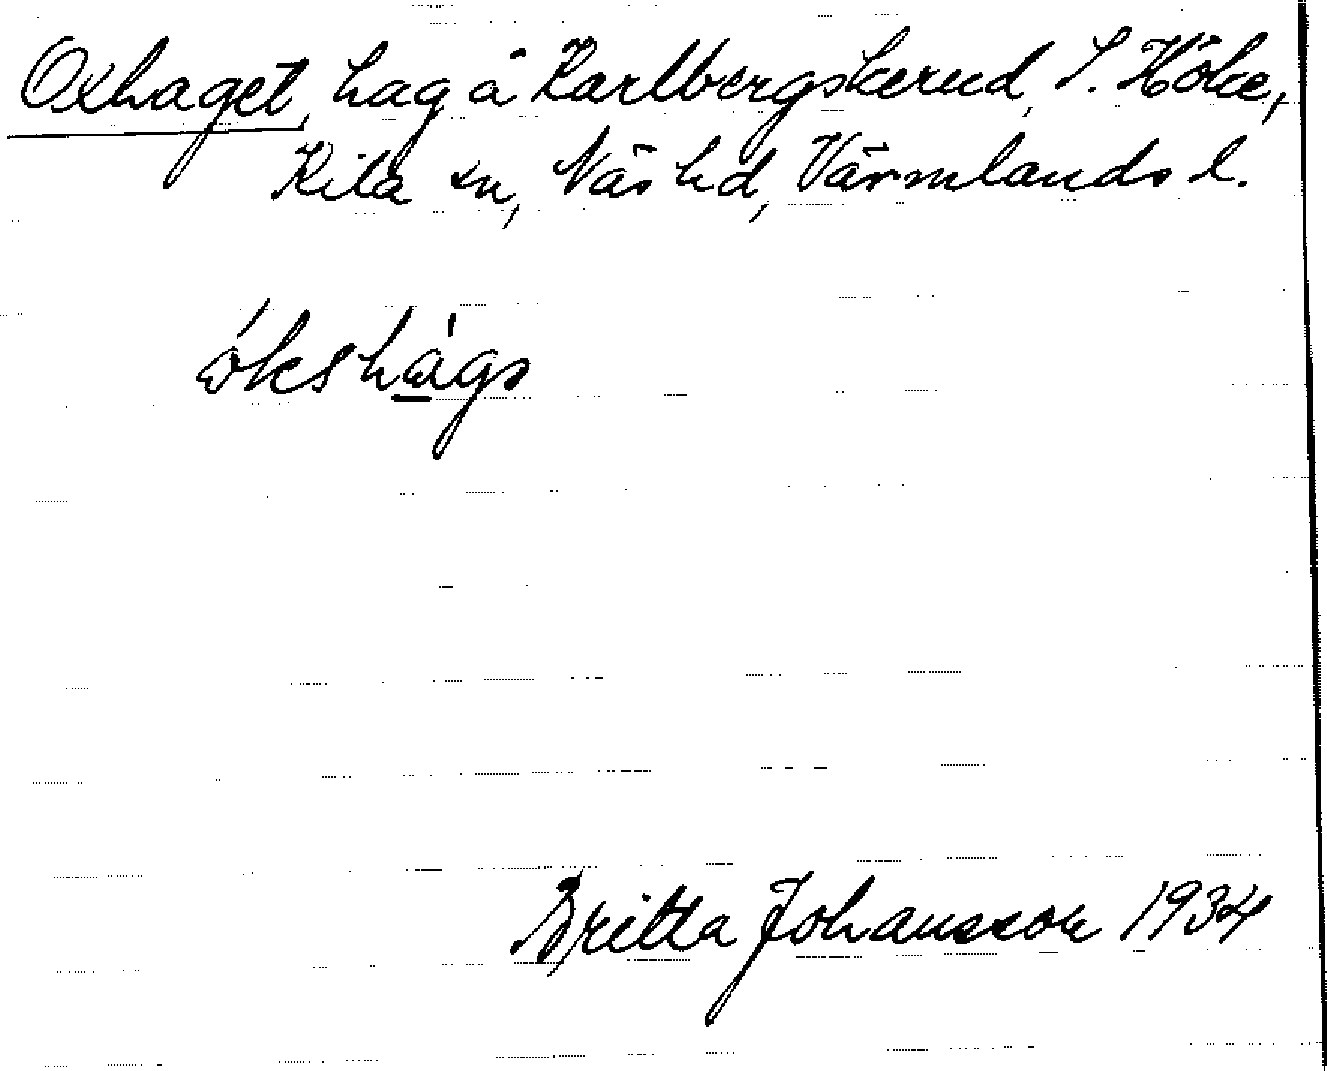 Oxhaget, hag å Karlbergskerud, S. Höke,
Kila sn, Näs hd, Värmlands l.
ókshàgs
Britta Johansson 1934